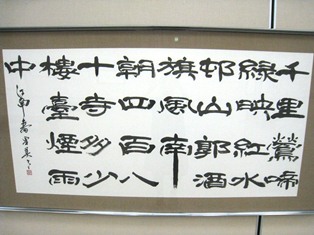 千里鶯啼
緑映紅水
邨山郭酒
旗風南
朝四百八
十寺多少
樓臺煙雨
中